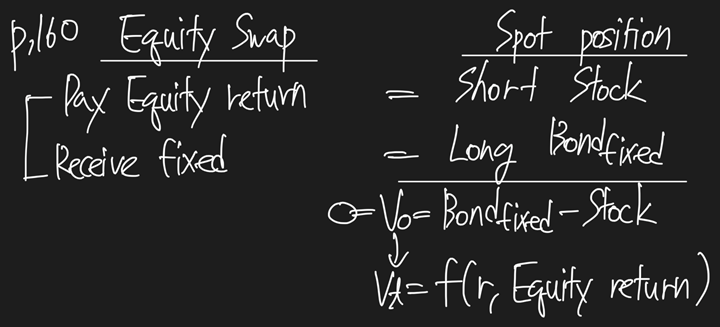 p.160 Equity Swap Spot position
Pay Equity return = Short Stock
Receive fixed = Long Bondfixed
0=V0=Bondfixed-Stock
Vt=f(r, Equity return)